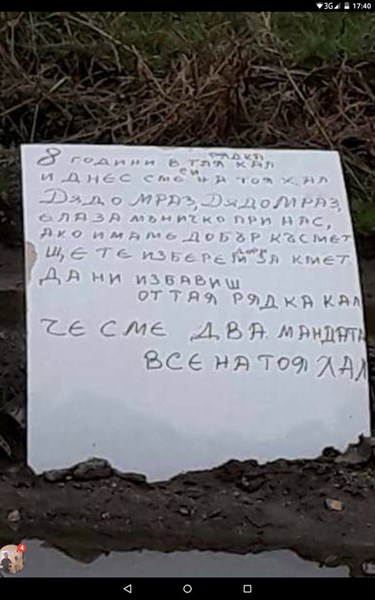 3G 17:40
8 ГОДИНИ В ТАЯ РЯДКА КАЛ
И ДНЕС СМЕ СИ НА ТОЯ ХАЛ
ДЯДО МРАЗ, ДЯДО МРАЗ,
ЕЛА ЗА МЪНИЧКО ПРИ НАС,
АКО ИМАМЕ ДОБЪР КЪСМЕТ
ЩЕ ТЕ ИЗБЕРЕМ ЗА КМЕТ
ДА НИ ИЗБАВИШ
ОТ ТАЯ РЯДКА КАЛ
ЧЕ СМЕ ДВА МАНДАТА
ВСЕ НА ТОЯ ХАЛ